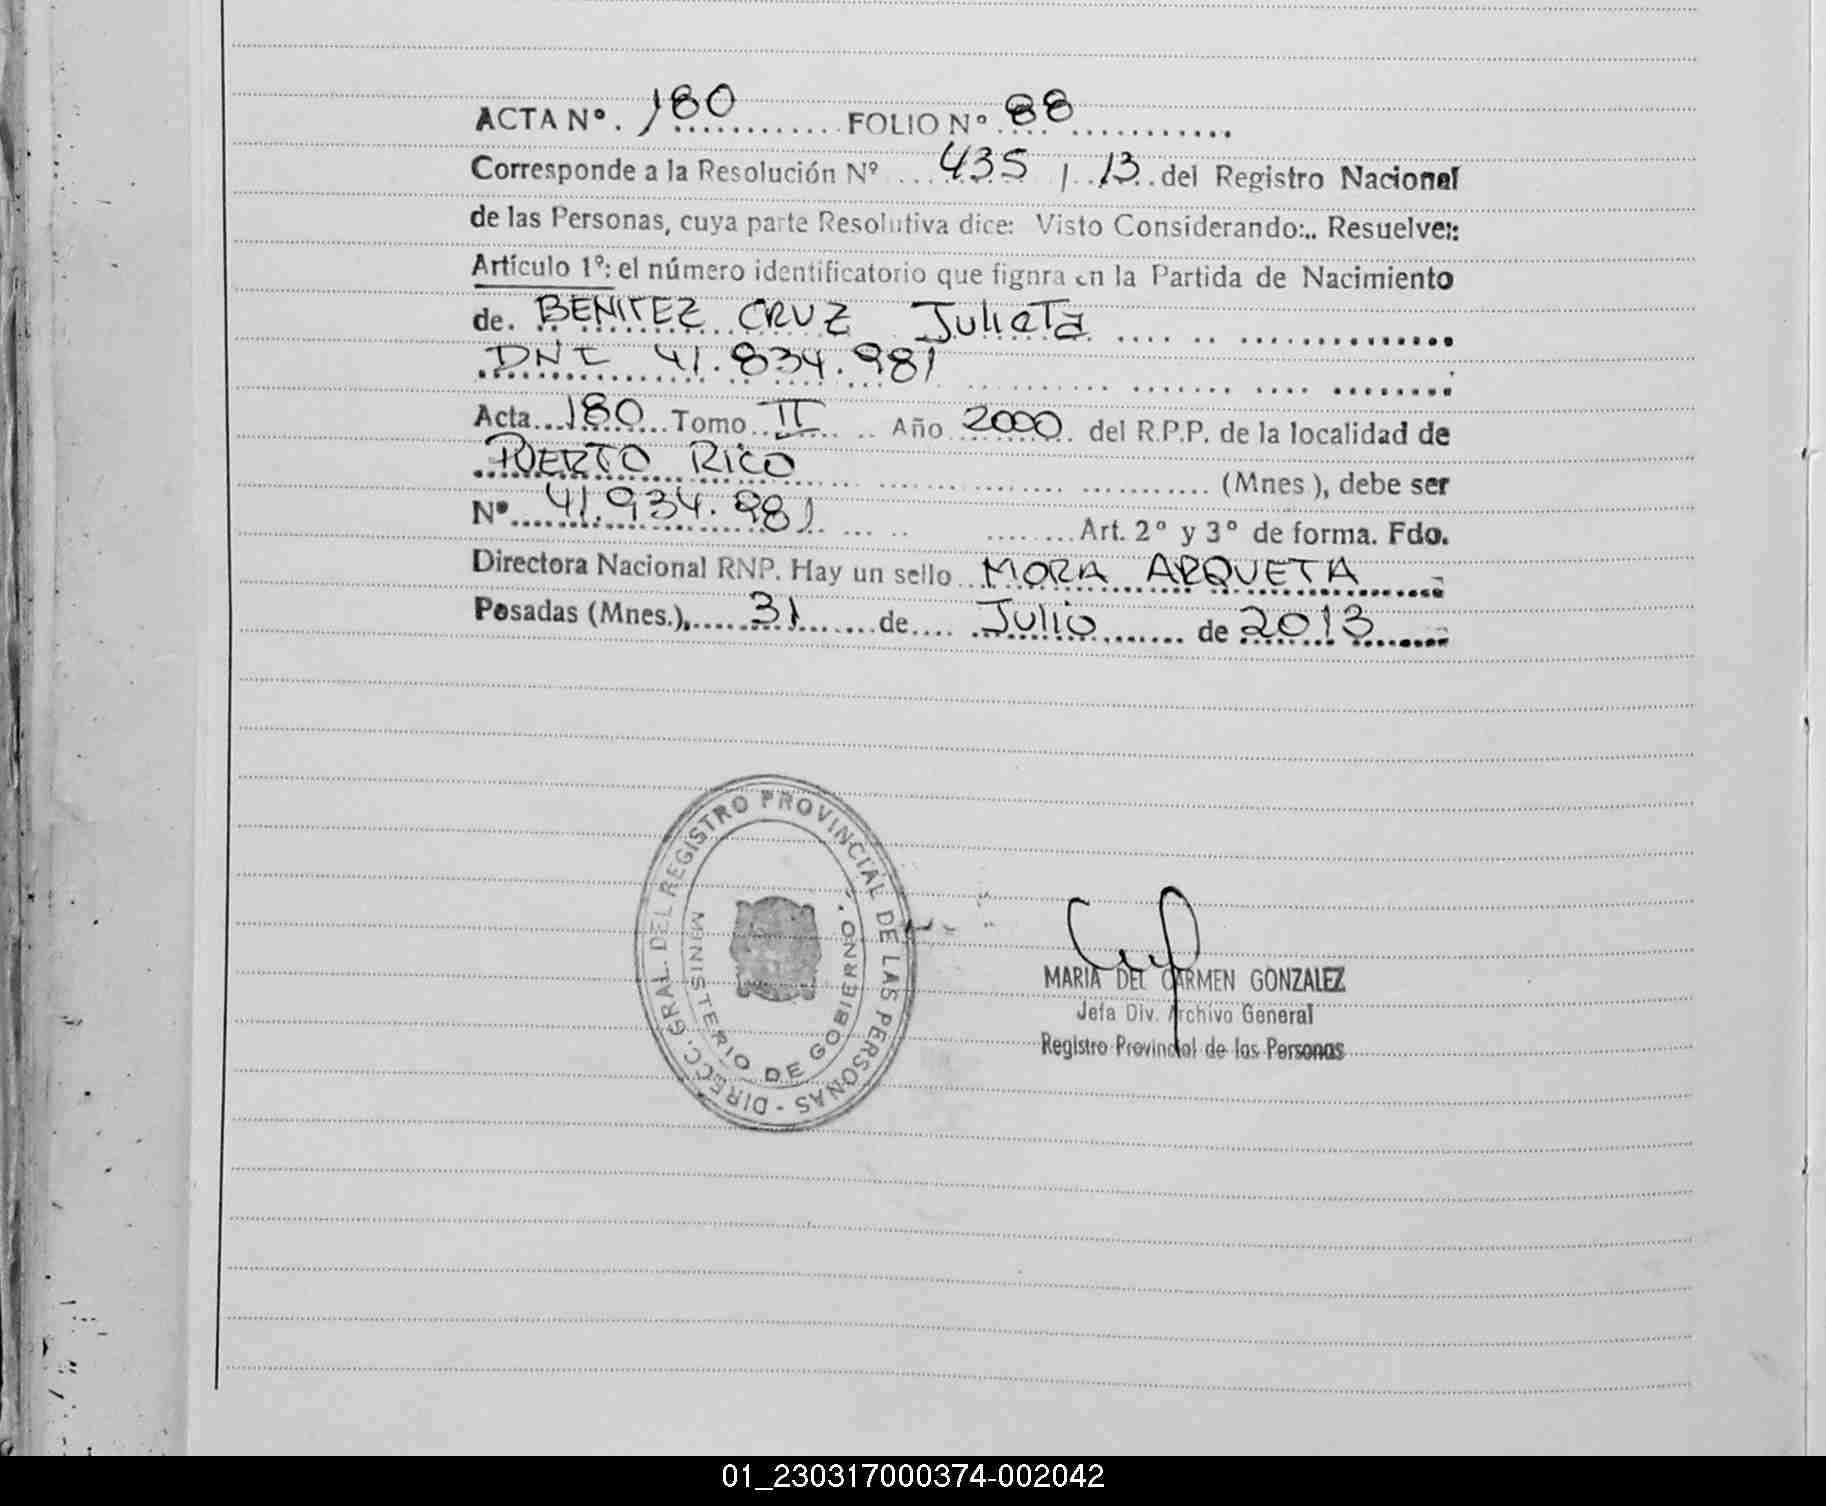 ACTA Nº. 180 FOLIO Nº 88
Corresponde a la Resolución Nº 435 / 13 del Registro Nacional
de las Personas, cuya parte Resolutiva dice: Visto Considerando:.. Resuelve::
Artículo 1º: el número identificatorio que fignra en la Partida de Nacimiento
de. BENITEZ CRUZ Julieta
DNI 41.834.981
Acta 180 Tomo II Año 2000 del R.P.P. de la localidad de
PUERTO RICO (Mnes.), debe ser
Nº 41.934.981 Art. 2º y 3º de forma. Fdo.
Directora Nacional RNP. Hay un sello MORA ARQUETA
Posadas (Mnes.), 31 de Julio de 2013
DIRECC. GRAL. DEL REGISTRO PROVINCIAL DE LAS PERSONAS -
MINISTERIO DE GOBIERNO
MARIA DEL CARMEN GONZALEZ
Jefa Div. Archivo General
Registro Provincial de las Personas
01_230317000374-002042